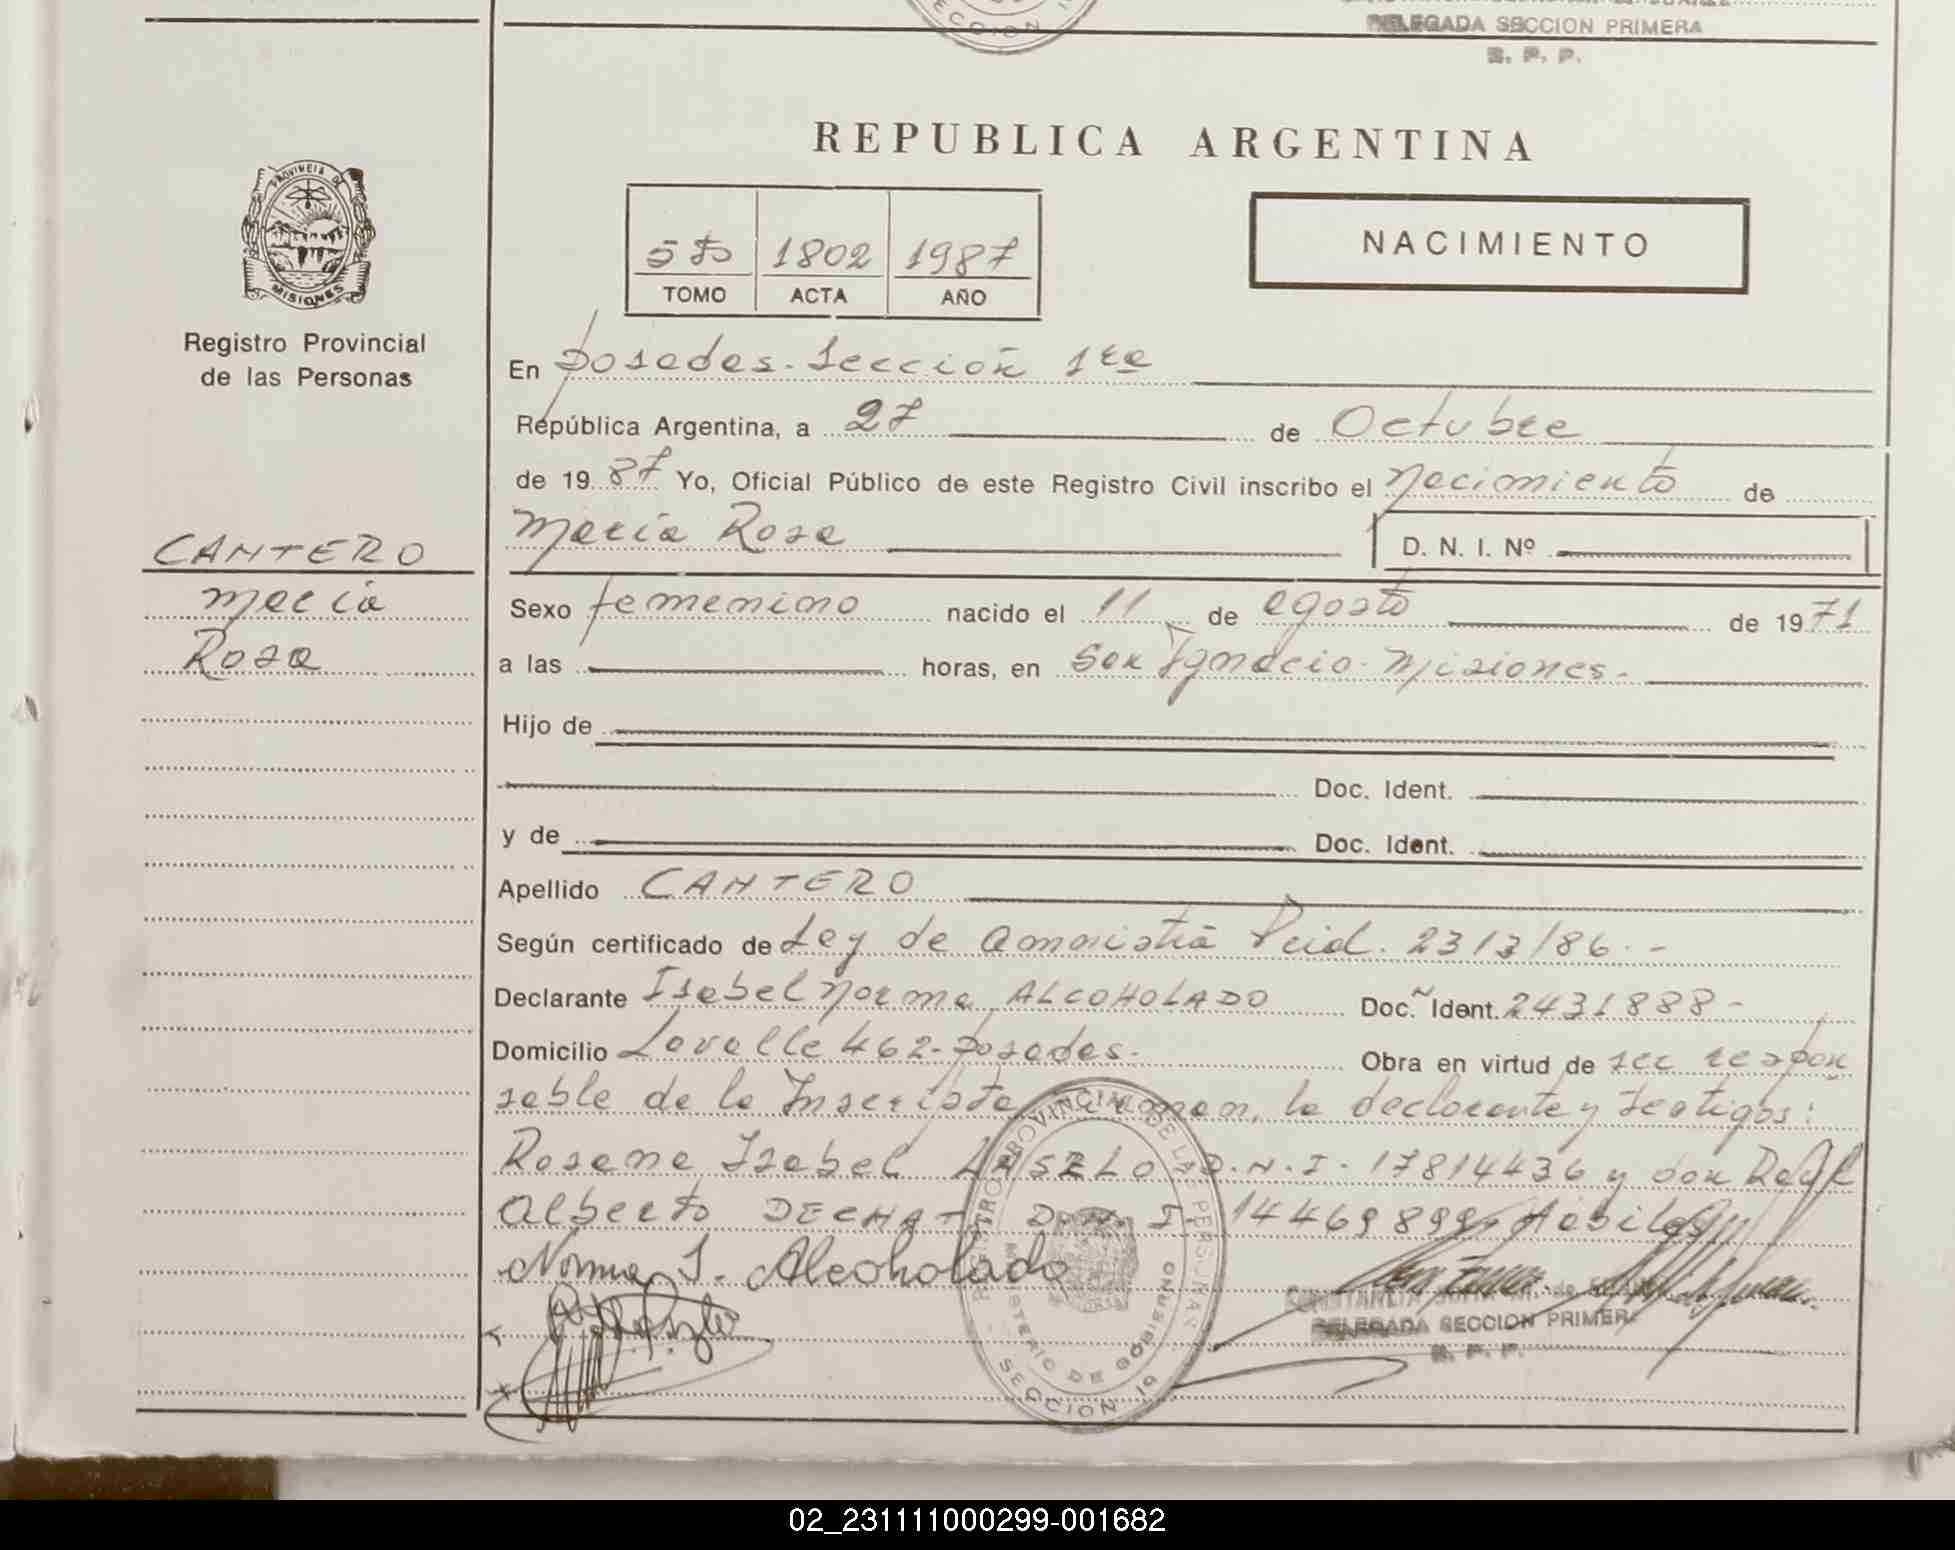 SECCION
DELEGADA SECCION PRIMERA
R. P. P.
REPUBLICA ARGENTINA
PROVINCIA DE
MISIONES
Registro Provincial
de las Personas
1802 1987
TOMO ACTA AÑO
NACIMIENTO
En Posadas. Sección 1ra
República Argentina, a 27 de Octubre
de 1987 Yo, Oficial Público de este Registro Civil inscribo el Nacimiento de
María Rosa D. N. I. Nº
CANTERO
María
Rosa
Sexo femenino nacido el 11 de agosto de 1971
a las horas, en San Ignacio. Misiones.-
Hijo de
Doc. Ident.
y de Doc. Ident.
Apellido CANTERO
Según certificado de Ley de amnistía 2313/86.-
Declarante Isabel Norma ALCOHOLADO Doc. Ident. 2431888-
Domicilio Lavalle 462-Posadas.- Obra en virtud de ser respon
sable de la Inscripta la declarante y testigos:
Rosana Isabel D.N.I. 17814436 y don
Alberto DECHAT D.N.I. 14469899. Hábiles
Norma I. Alcoholado
REGISTRO PROVINCIAL DE LAS PERSONAS
MINISTERIO DE GOBIERNO
SECCION 1a
DELEGADA SECCION PRIMERA
R. P. P.
02_231111000299-001682